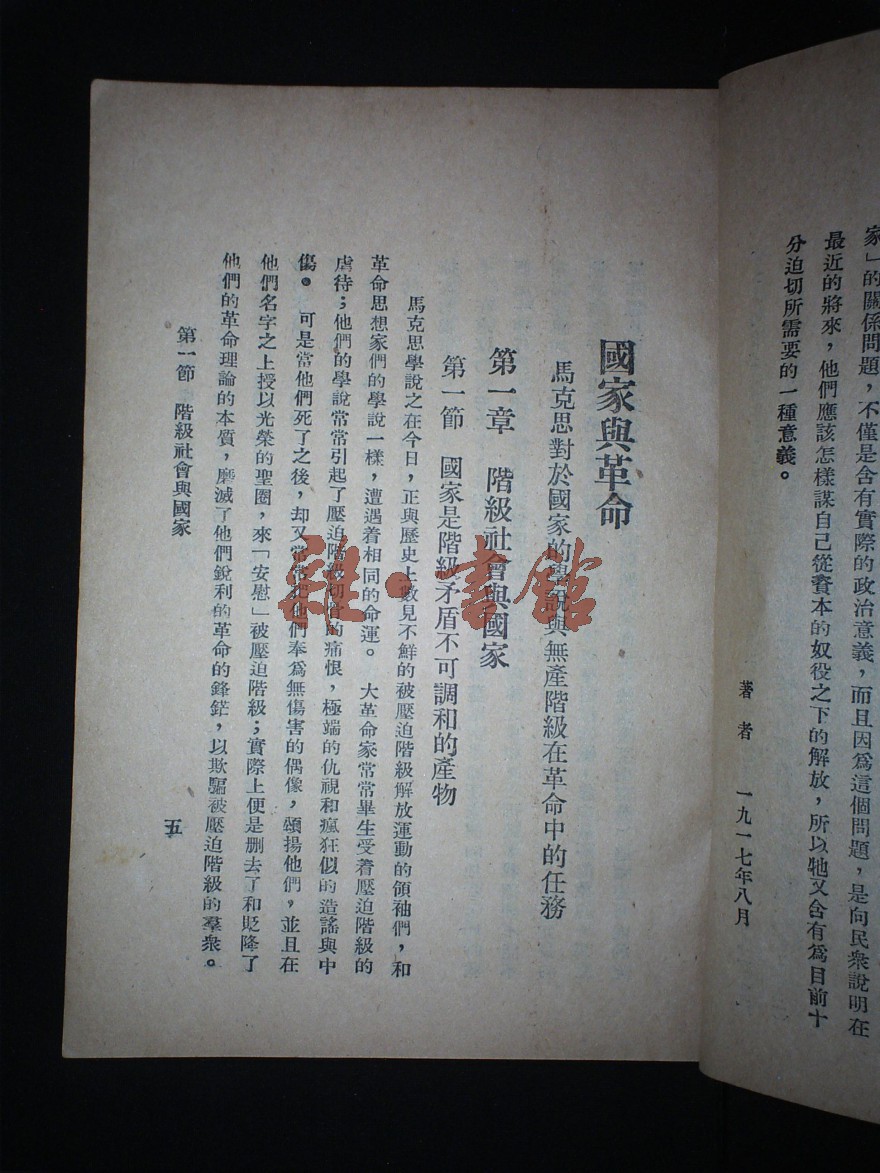 家」的關係問題，不僅是含有實際的政治意義，而且因爲這個問題，是向民衆說明在
最近的將來，他們應該怎樣謀自己從資本的奴役之下的解放，所以牠又含有爲目前十
分迫切所需要的一種意義。
著者　一九一七年八月
國家與革命
馬克思對於國家的學說與無產階級在革命中的任務
第一章　階級社會與國家
第一節　國家是階級矛盾不可調和的產物
馬克思學說之在今日，正與歷史上數見不鮮的被壓迫階級解放運動的領袖們，和
革命思想家們的學說一樣，遭遇着相同的命運。　大革命家常常畢生受着壓迫階級的
虐待；他們的學說常常引起了壓迫階級切骨的痛恨，極端的仇視和瘋狂似的造謠與中
傷。　可是當他們死了之後，却又常常把他們奉爲無傷害的偶像，頌揚他們，並且在
他們名字之上授以光榮的聖圈，來「安慰」被壓迫階級；實際上便是删去了和貶降了
他們的革命理論的本質，磨滅了他們銳利的革命的鋒鋩，以欺騙被壓迫階級的羣衆。
第一節　階級社會與國家
五
雜·書館